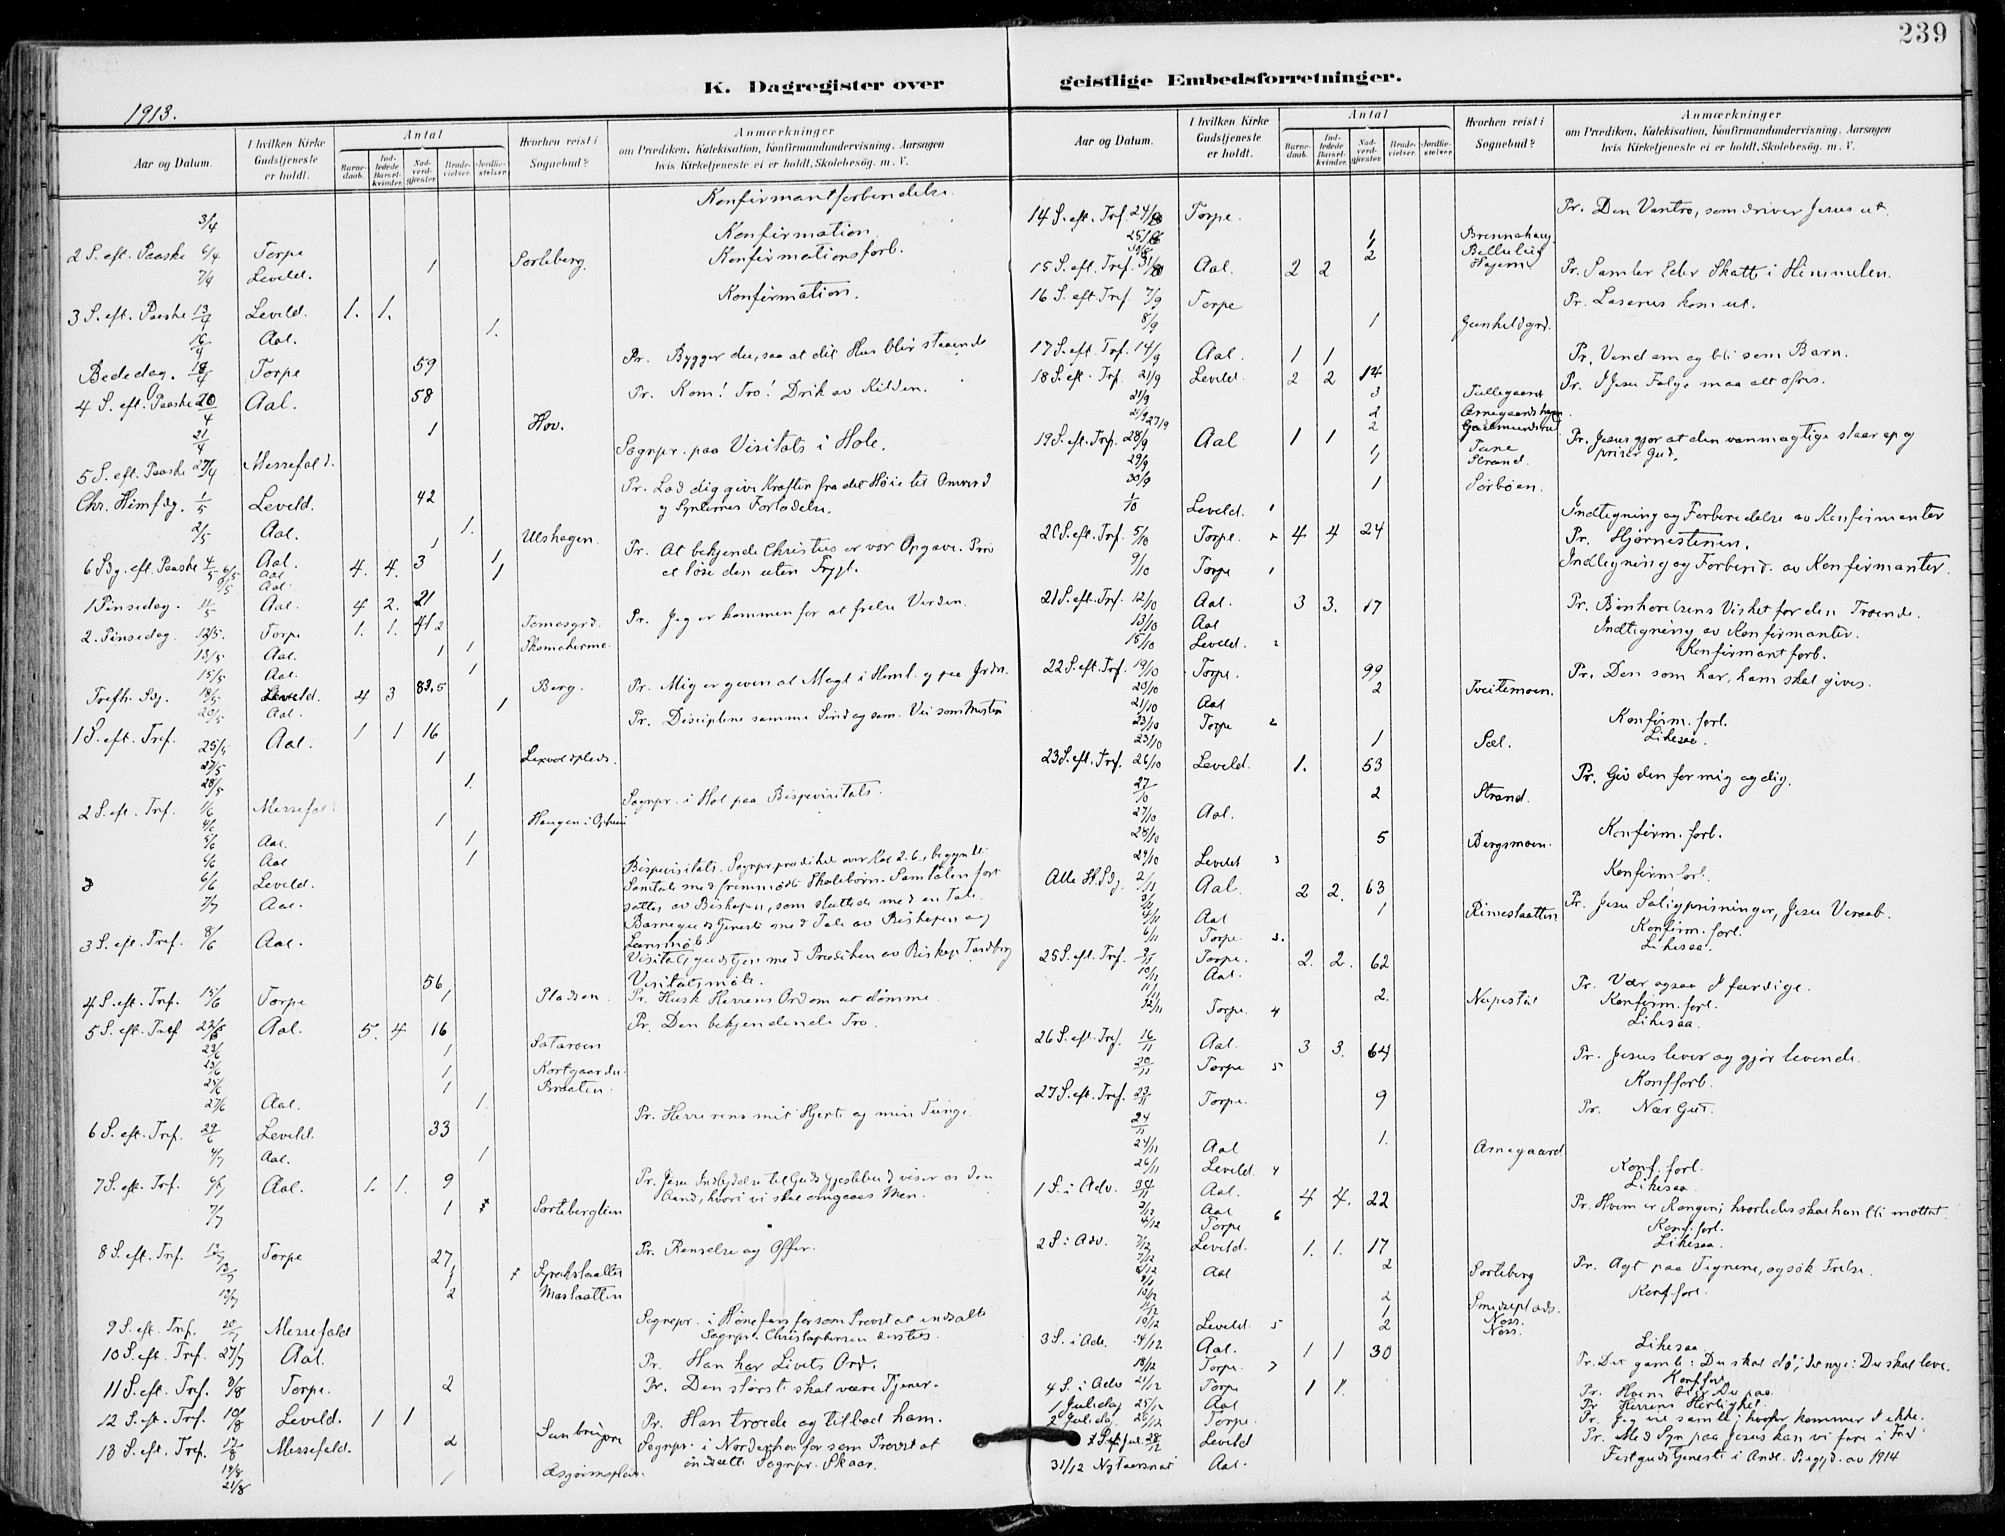 239
K. Dagregister over geistlige Embedsforretninger.
1913.
Aar og Datum. I hvilken Kirke Gudstjeneste er holdt. Antal Barnedaab. Indledede Barselkvinder. Nadverdgjæster. Brudevielser. Jordfæstelser. Hvorhen reist i Sognebud? Anmærkninger om Prædiken, Katekisation, Konfirmandundervisning, Aarsagen hvis Kirketjeneste ei er holdt, Skolebesøg. m. V.
Konfirmantforberedelse.
3/4
Konfirmation
2 S. eft. Paaske 6/4 Torpe Konfirmationsforb.
7/4 Leveld. 1 Sorteberg.
Konfirmation.
3 S. eft. Paaske 13/4 Leveld. 1. 1.
16/4 Aal. 1.
Bededag. 18/4 Torpe 59 Pr. Bygger du, saa at dit Hus blir staaende
4 S. eft. Paaske 20/4 Aal. 58 Pr. Kom! Tro! Drik av Kilden.
21/4 1 Hov.
5 S. eft. Paaske 27/4 Messefald. Sognpr. paa Visitats i Hole.
Chr. Himfdg. 1/5 Leveld. 42 Pr. Lad dig give Kraften fra det Høie til Omvend
og Syndernes Forladelse.
2/5 Aal. 1.
1 Ulshagen.
6 Sg. eft. Paaske 4/5 Aal. 4. 4. 3 1 Pr. At bekjende Christus er vor Opgave.
6/5 Aal. 1 at løse den uten Frygt.
Aal.
1 Pinsedag. 11/5 Aal. 4 2. 21
2. Pinsedag. 12/5. Torpe 1. 1. 42 Tomesgrd. Pr. Jeg er kommen for at frelse Verden.
13/5 Aal. 1 1 Skomakermo.
15/5 Aal. 1
Trefh. Sg. 18/5 Leveld. 4 3 83.5 Berg. Pr. Mig er given al Magt i Himl. og paa Jrdn.
20/5 Aal. 1
1 S. eft. Tref. 25/5 Aal. 1 1 16 Pr. Disciplene samme Sindag som.
27/5 1
28/5 1.
2 S. eft. Tref. 1/6 Messefal. Sognpr. i Hol paa Bispevisitats.
4/6 1 Haugen i
5/6 Aal. 1
6/6 Aal 1
6/6 Leveld. Bispevisitats. Sognpr. prædiket over Kol 2.6., begyndte
7/7 Aal. Samtale med fremmødte Skolebørn. Samtalen fort
sattes av Biskopen, som sluttede med en Tale.
3 S. eft. Tref. 8/6 Aal. Barnegudstjeneste med Tale av Biskopen og
Læremøte.
Visitatsgudstjen. med Prædiken av Biskop Tandberg
56 Visitatsmøte.
4 S. eft. Tref. 15/6 Torpe 1 Pladsen Pr. Husk Herrens Ord om at dømme.
5 S. eft. Tref 22/6 Aal. 5. 4 16 Pr. Den bekjendende Tro.
23/6 1 Sataroen
23/6 1 Kortgaarden.
25/6 1 Braaten.
27/6 Aal. 1.
6 S. eft. Tref. 29/6 Leveld. 33 Pr. Herre rens mit Hjerte og min Tunge.
4/7 Aal. 1
7 S. eft. Tref. 6/7 Aal. 1. 1. 9 Pr. Jesu Indbydelse til Guds Gjestebud viser os den
7/7 1 Sorteberglien Aand, hvori vi skal omgaaes Men.
8 S. eft. Tref. 13/7 Torpe 27 Pr. Renselse og Offer.
13/7 1
13/7 2
9 S. eft. Tref. 20/7 Messefald Sognepr. i Hønefoss for som Provst at indsætte
Sognpr. Christophersen dersteds.
10 S. eft. Tref. 27/7 Aal. Pr. Han har Livets Ord.
11 S. eft. Tref. 3/8 Torpe. 2 Pr. Den største skal være Tjener.
12 S. eft. Tref. 10/8 Leveld. 1 1 Pr. Han troede og tilbad ham.
13 S. eft. Tref. 17/8 Messefald. 2 Sognpr. i Norderhov for som Provst at
19/8 indsætte Sognpr. Skaar.
21/8 1
Aar og Datum. I hvilken Kirke Gudstjeneste er holdt. Antal Barnedaab. Indledede Barselkvinder. Nadverdgjæster. Brudevielser. Jordfæstelser. Hvorhen reist i Sognebud? Anmærkninger om Prædiken, Katekisation, Konfirmandundervisning, Aarsagen hvis Kirketjeneste ei er holdt, Skolebesøg. m. V.
14 S. eft. Tref. 24/8 Torpe. Pr. Den Vantro, som driver Jesus ut.
25/8 1 Brennehaug
2
15 S. eft. Tref. 31/8 Aal. 2 2 Pr. Samler Eder Skatte i Himmelen.
16 S. eft Tref. 7/9 Torpe Pr. Lasarus kom ut.
8/9 1 Gunhildgrd.
17 S. eft. Tref. 14/9 Aal. 1 1 Pr. Vend om og bli som Barn.
18 S. eft. Tref. 21/9 Leveld. 2 2 14 Pr. I Jesu Følge maa alt ofres.
21/9 3 Tullegaard
21/9 2
27/9 2
19 S. eft. Tref. 28/9 Aal 1 1 Pr. Jesus gjør at den vanmægtige staar op og
29/9 1 Strand. priser Gud.
30/9 1 Sørbøen.
1/10 Leveld. 1 Indtegning og Forberedelse av Konfirmanter
20 S. eft. Tref. 5/10 Torpe. 4 4 24 Pr. Hjørnestenen.
9/10 Torpe 1 Indtegning og Forbered. av Konfirmanter.
21 S. eft. Tref. 12/10 Aal. 3 3. 17 Pr. Bønhørelsens Vished for den Troende.
13/10 Aal Indtegning av Konfirmanter.
15/10 Leveld. 2 Konfirmant forb.
22 S. eft. Tref. 19/10 Torpe. 99 Pr. Den som har, ham skal gives.
20/10 2 Tveitemoen.
21/10 Aal Konfirm. forb.
23/10 Torpe 2 Likesaa.
23/10 1 Sæl.
23 S. eft. Tref. 26/10 Leveld. 1. 53 Pr. Giv den for mig og dig.
27/10 2 Strand.
27/10 Aal. Konfirm. forb.
28/10 5 Bergsmoen.
29/10 Leveld 3 Konfirm forb.
Alle H. Sdg. 2/11 Aal. 2 2. 63 Pr. Jesu Saligprisninger, Jesu Veraab.
3/11 1
4/11 Aal Konfirm. forb.
6/11 Torpe. 3. Likesaa.
25 S. eft. Tref. 9/11 Torpe. 2. 2. 62 Pr. Vær ogsaa I færdige.
10/11 Aal. Konfirm. forb.
11/11 2.
12/11 Torpe. 4 Likesaa.
26 S. eft. Tref. 16/11 Aal. 3 3. 64 Pr. Jesus lever og gjør levende.
20/11 Torpe 5 Konfforb.
27 S. eft. Tref. 23/11 Torpe. 9 Pr. Nær Gud.
24/11 1. Arnegaard
24/11 Aal Konf. forb.
26/11 Leveld. 4 Likesaa.
1 S. i Adv. 30/11 Aal. 4 4. 22 Pr. Hvem er Kongen; hvorledes skal han bli mottat.
2/12 Aal Konf. forb.
4/12 Torpe 6 Likesaa.
2 S. i Adv. 7/12 Leveld. 1. 1. 17 Pr. Agt paa Tegnene, og søk Frelse.
7/12 2 Sorteberg
8/12 Aal Konf. forb.
2 Smedsplads.
1 Noss.
10/12 Leveld 5 2 Noss. Likesaa
3 S. i Adv. 14/12 Aal. 1 1 30 Pr. Det gamle: Du skal dø; det nye: Du skal leve.
18/12 Torpe. 7 Konf for
4 S. i Adv 21/12 Torpe 1 1. Pr. Hvem
1 Juledag 25/12 Aal Pr Herrens Herlighet.
2 Juledag 26/12 Torpe. Pr. Jeg vil samle; hvorfor kommer I ikke.
28/12 Leveld Pr. Med Syn paa Jesus kan vi fare i Fred
31/12 Nytaarsnat Aal. Festgudstjeneste i Anl. av 1914